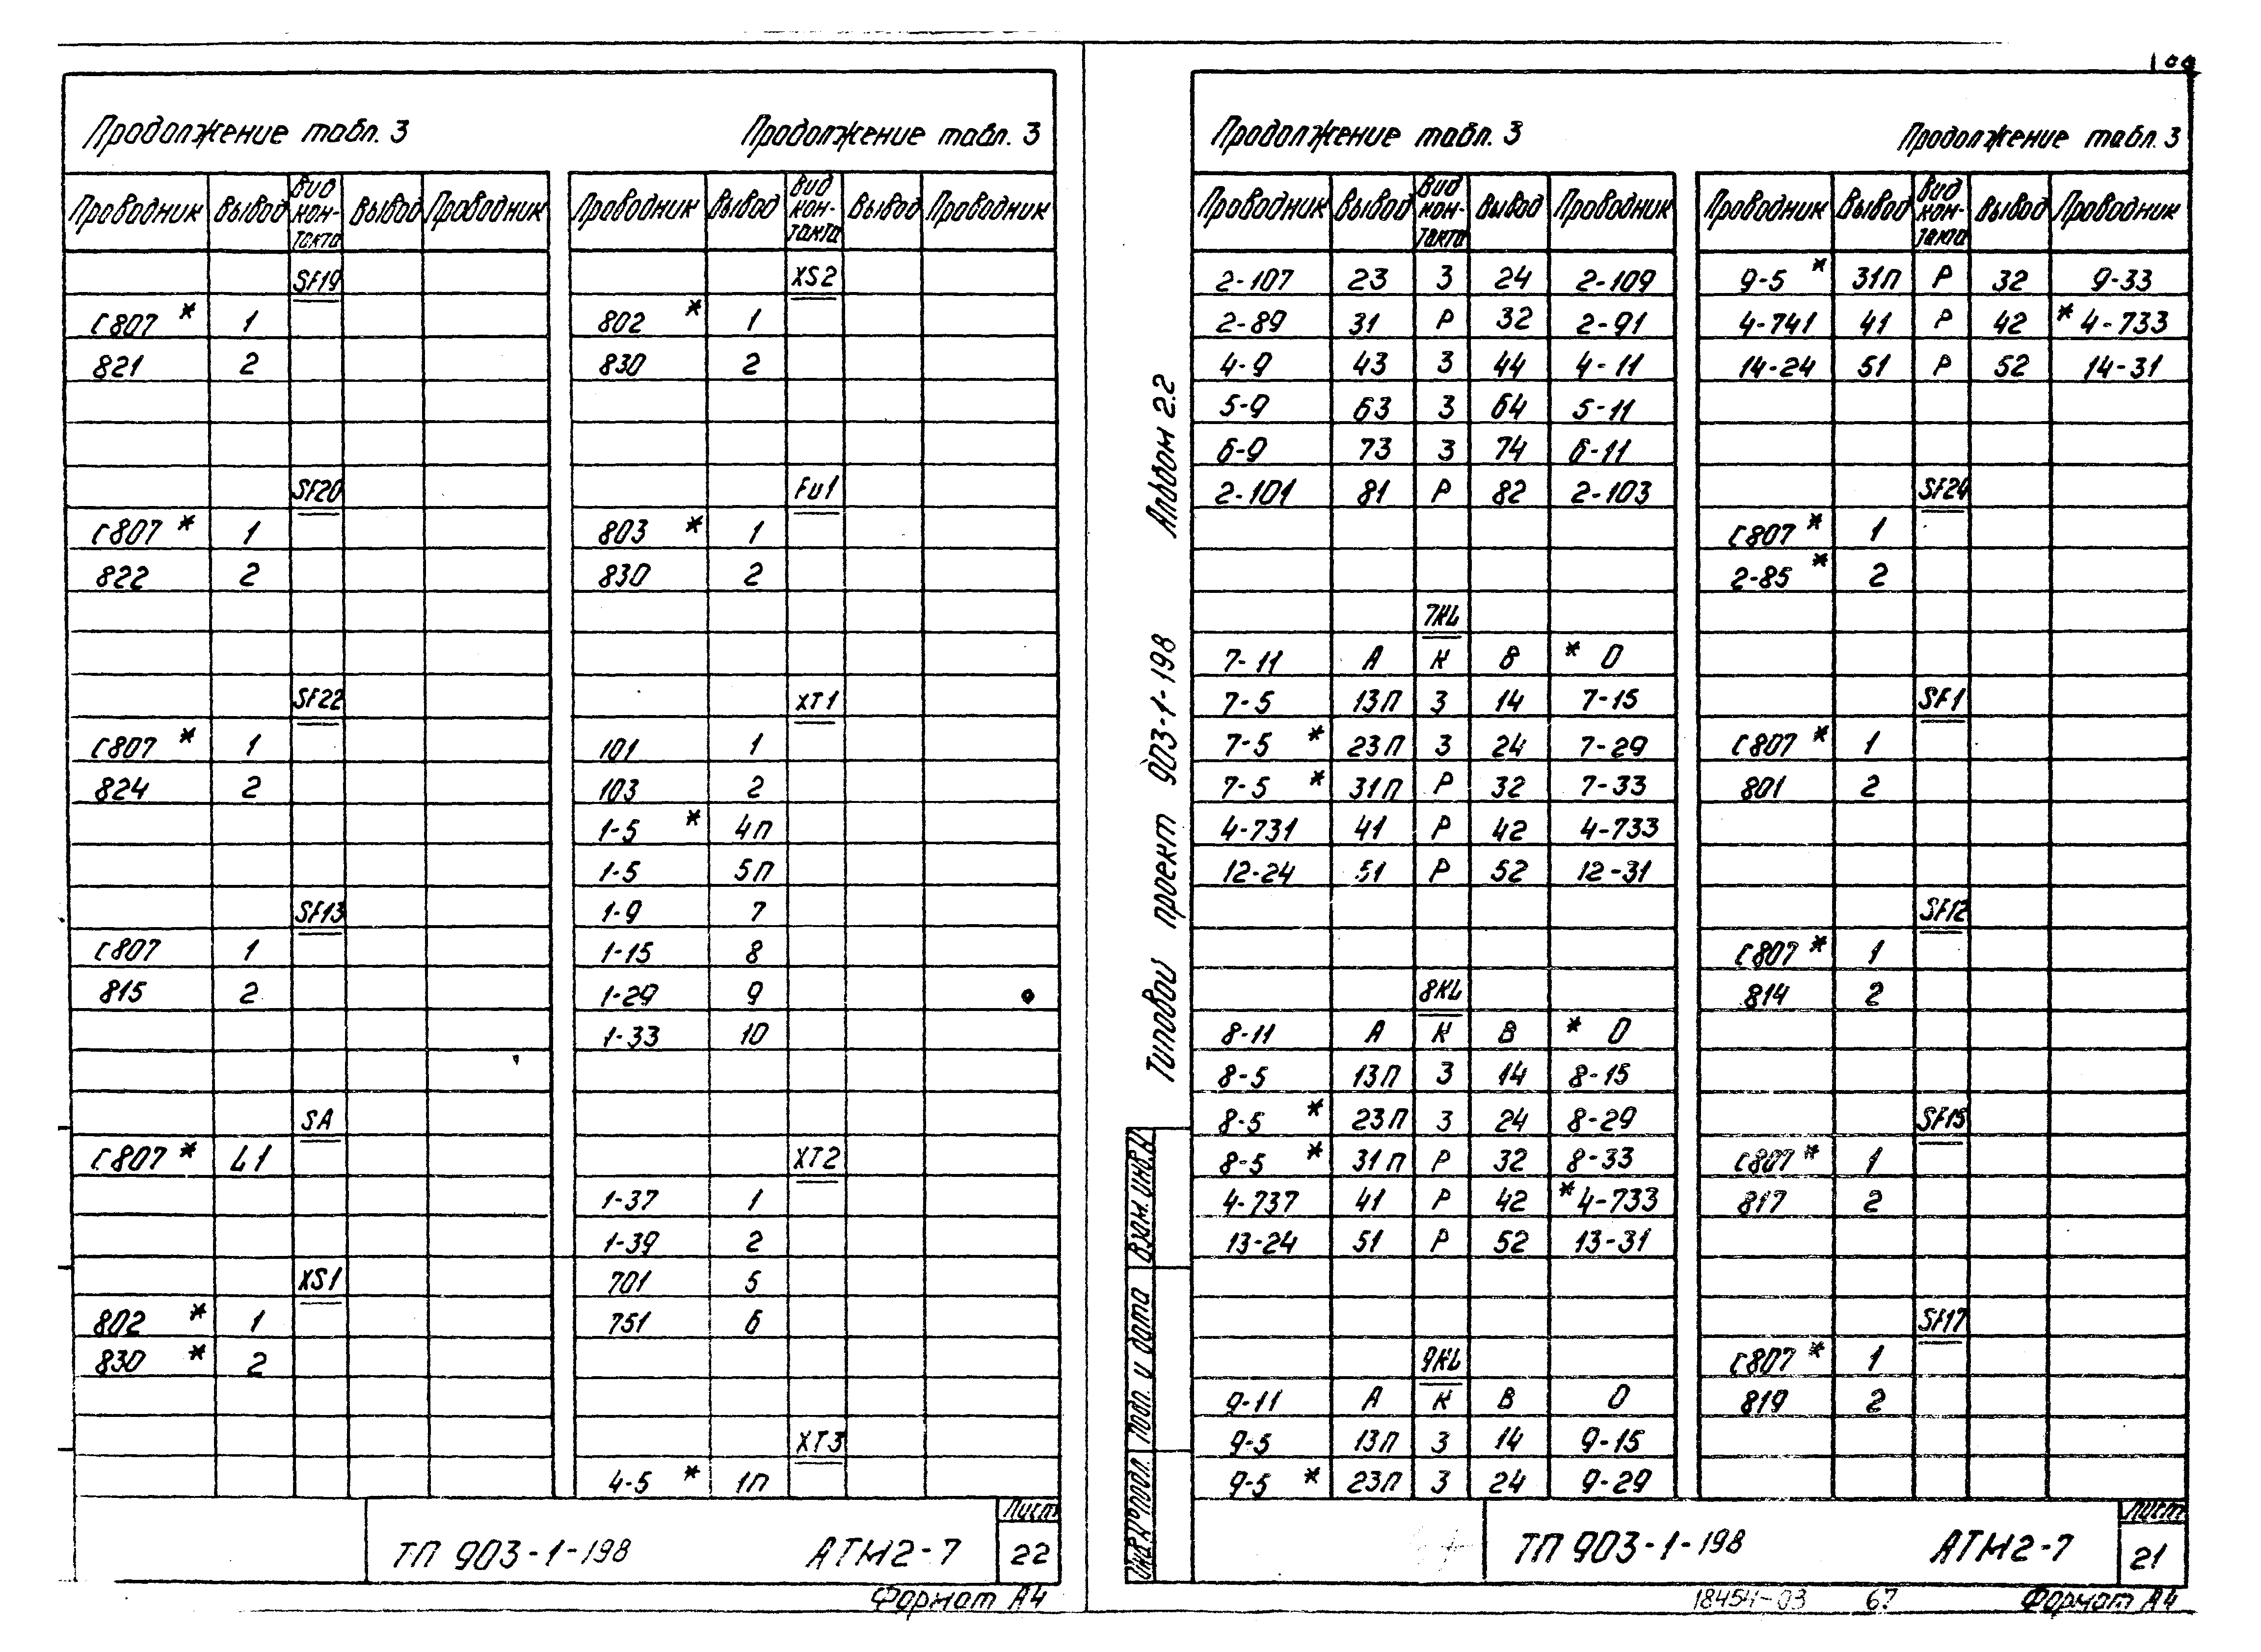 Продолжение табл. 3 Продолжение табл. 3
Проводник Вывод Вид кон-такта Вывод Проводник Проводник Вывод Вид кон-такта Вывод Проводник
SF19 XS2
С807 * 1 802 * 1
821 2 830 2
SF20 Fu1
С807 * 1 803 * 1
822 2 830 2
SF22 XT1
С807 * 1 101 1
824 2 103 2
1-5 * 4П
1-5 5П
SF13 1-9 7
С807 1 1-15 8
815 2 1-29 9
1-33 10
SA
С807 * L1 XT2
1-37 1
1-39 2
XS1 701 5
802 * 1 751 6
830 * 2
XT3
4-5 * 1П
Лист
ТП 903-1-198 АТМ2-7 22
Формат А4
Альбом 2.2
Типовой проект 903-1-198
Взам. инв. N
Подп. и дата
Инв. N° подл.
Продолжение табл. 3 Продолжение табл. 3
Проводник Вывод Вид кон-такта Вывод Проводник Проводник Вывод Вид кон-такта Вывод Проводник
2-107 23 З 24 2-109 9-5 * 31П Р 32 9-33
2-89 31 Р 32 2-91 4-741 41 Р 42 * 4-733
4-9 43 З 44 4-11 14-24 51 Р 52 14-31
5-9 63 З 64 5-11
6-9 73 З 74 6-11
2-101 81 Р 82 2-103 SF24
С807 * 1
2-85 * 2
7KL
7-11 А К В * 0
7-5 13П З 14 7-15 SF1
7-5 * 23П З 24 7-29 С807 * 1
7-5 * 31П Р 32 7-33 801 2
4-731 41 Р 42 4-733
12-24 51 Р 52 12-31
SF12
С807 * 1
8KL 814 2
8-11 А К В * 0
8-5 13П З 14 8-15
8-5 * 23П З 24 8-29 SF15
8-5 * 31П Р 32 8-33 С807 * 1
4-737 41 Р 42 * 4-733 817 2
13-24 51 Р 52 13-31
SF17
9KL С807 * 1
9-11 А К В 0 819 2
9-5 13П З 14 9-15
9-5 * 23П З 24 9-29
Лист
ТП 903-1-198 АТМ2-7 21
18454-03 67 Формат А4